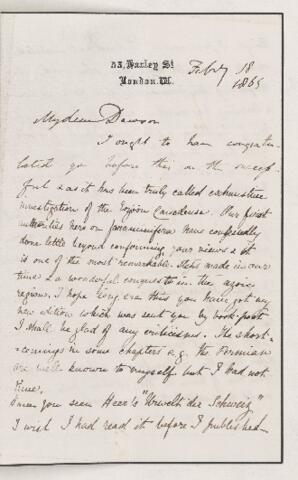 53, Harley St.
London. W.
Feby 18
1865
My dear Dawson
I ought to have congratu-
lated you before this on the success-
ful & as it has been truly called exhaustive
investigation of the Eozöon Canadense. Our first
authorities here on foraminifera have confessedly
done little beyond confirming your views & it
is one of the most remarkable steps made in our
time & a wonderful conquest in the azoic
regions. I hope long ere this you have got my
new edition which was sent you by book-post
I shall be glad of any criticisms. The short-
-comings in some chapters e.g. the Permian
are well known to myself but I had not
time.
Have you seen Heer's "Urwelt der Schweiz"
I wish I had read it before I published